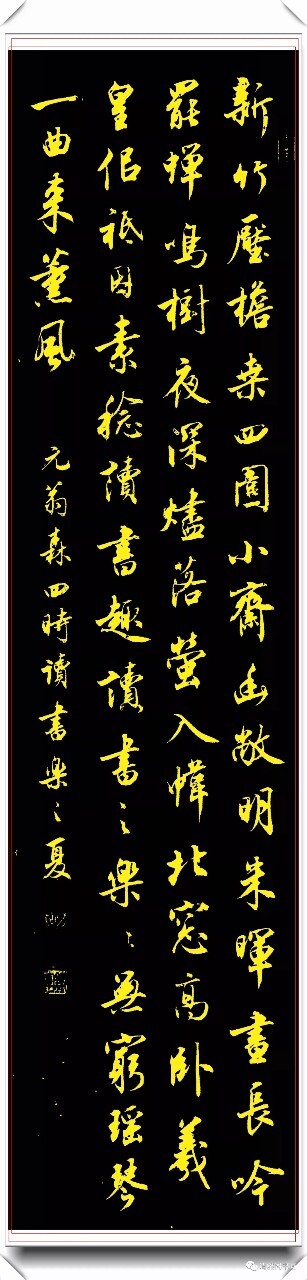 新竹壓檐桑四圍小齋幽敞明朱暉晝長吟
罷蟬鳴樹夜深燼落螢入幃北窓高卧羲
皇侣祗因素稔讀書趣讀書之樂〻無窮瑶琴
一曲来薰風
元翁森四時讀書樂之夏